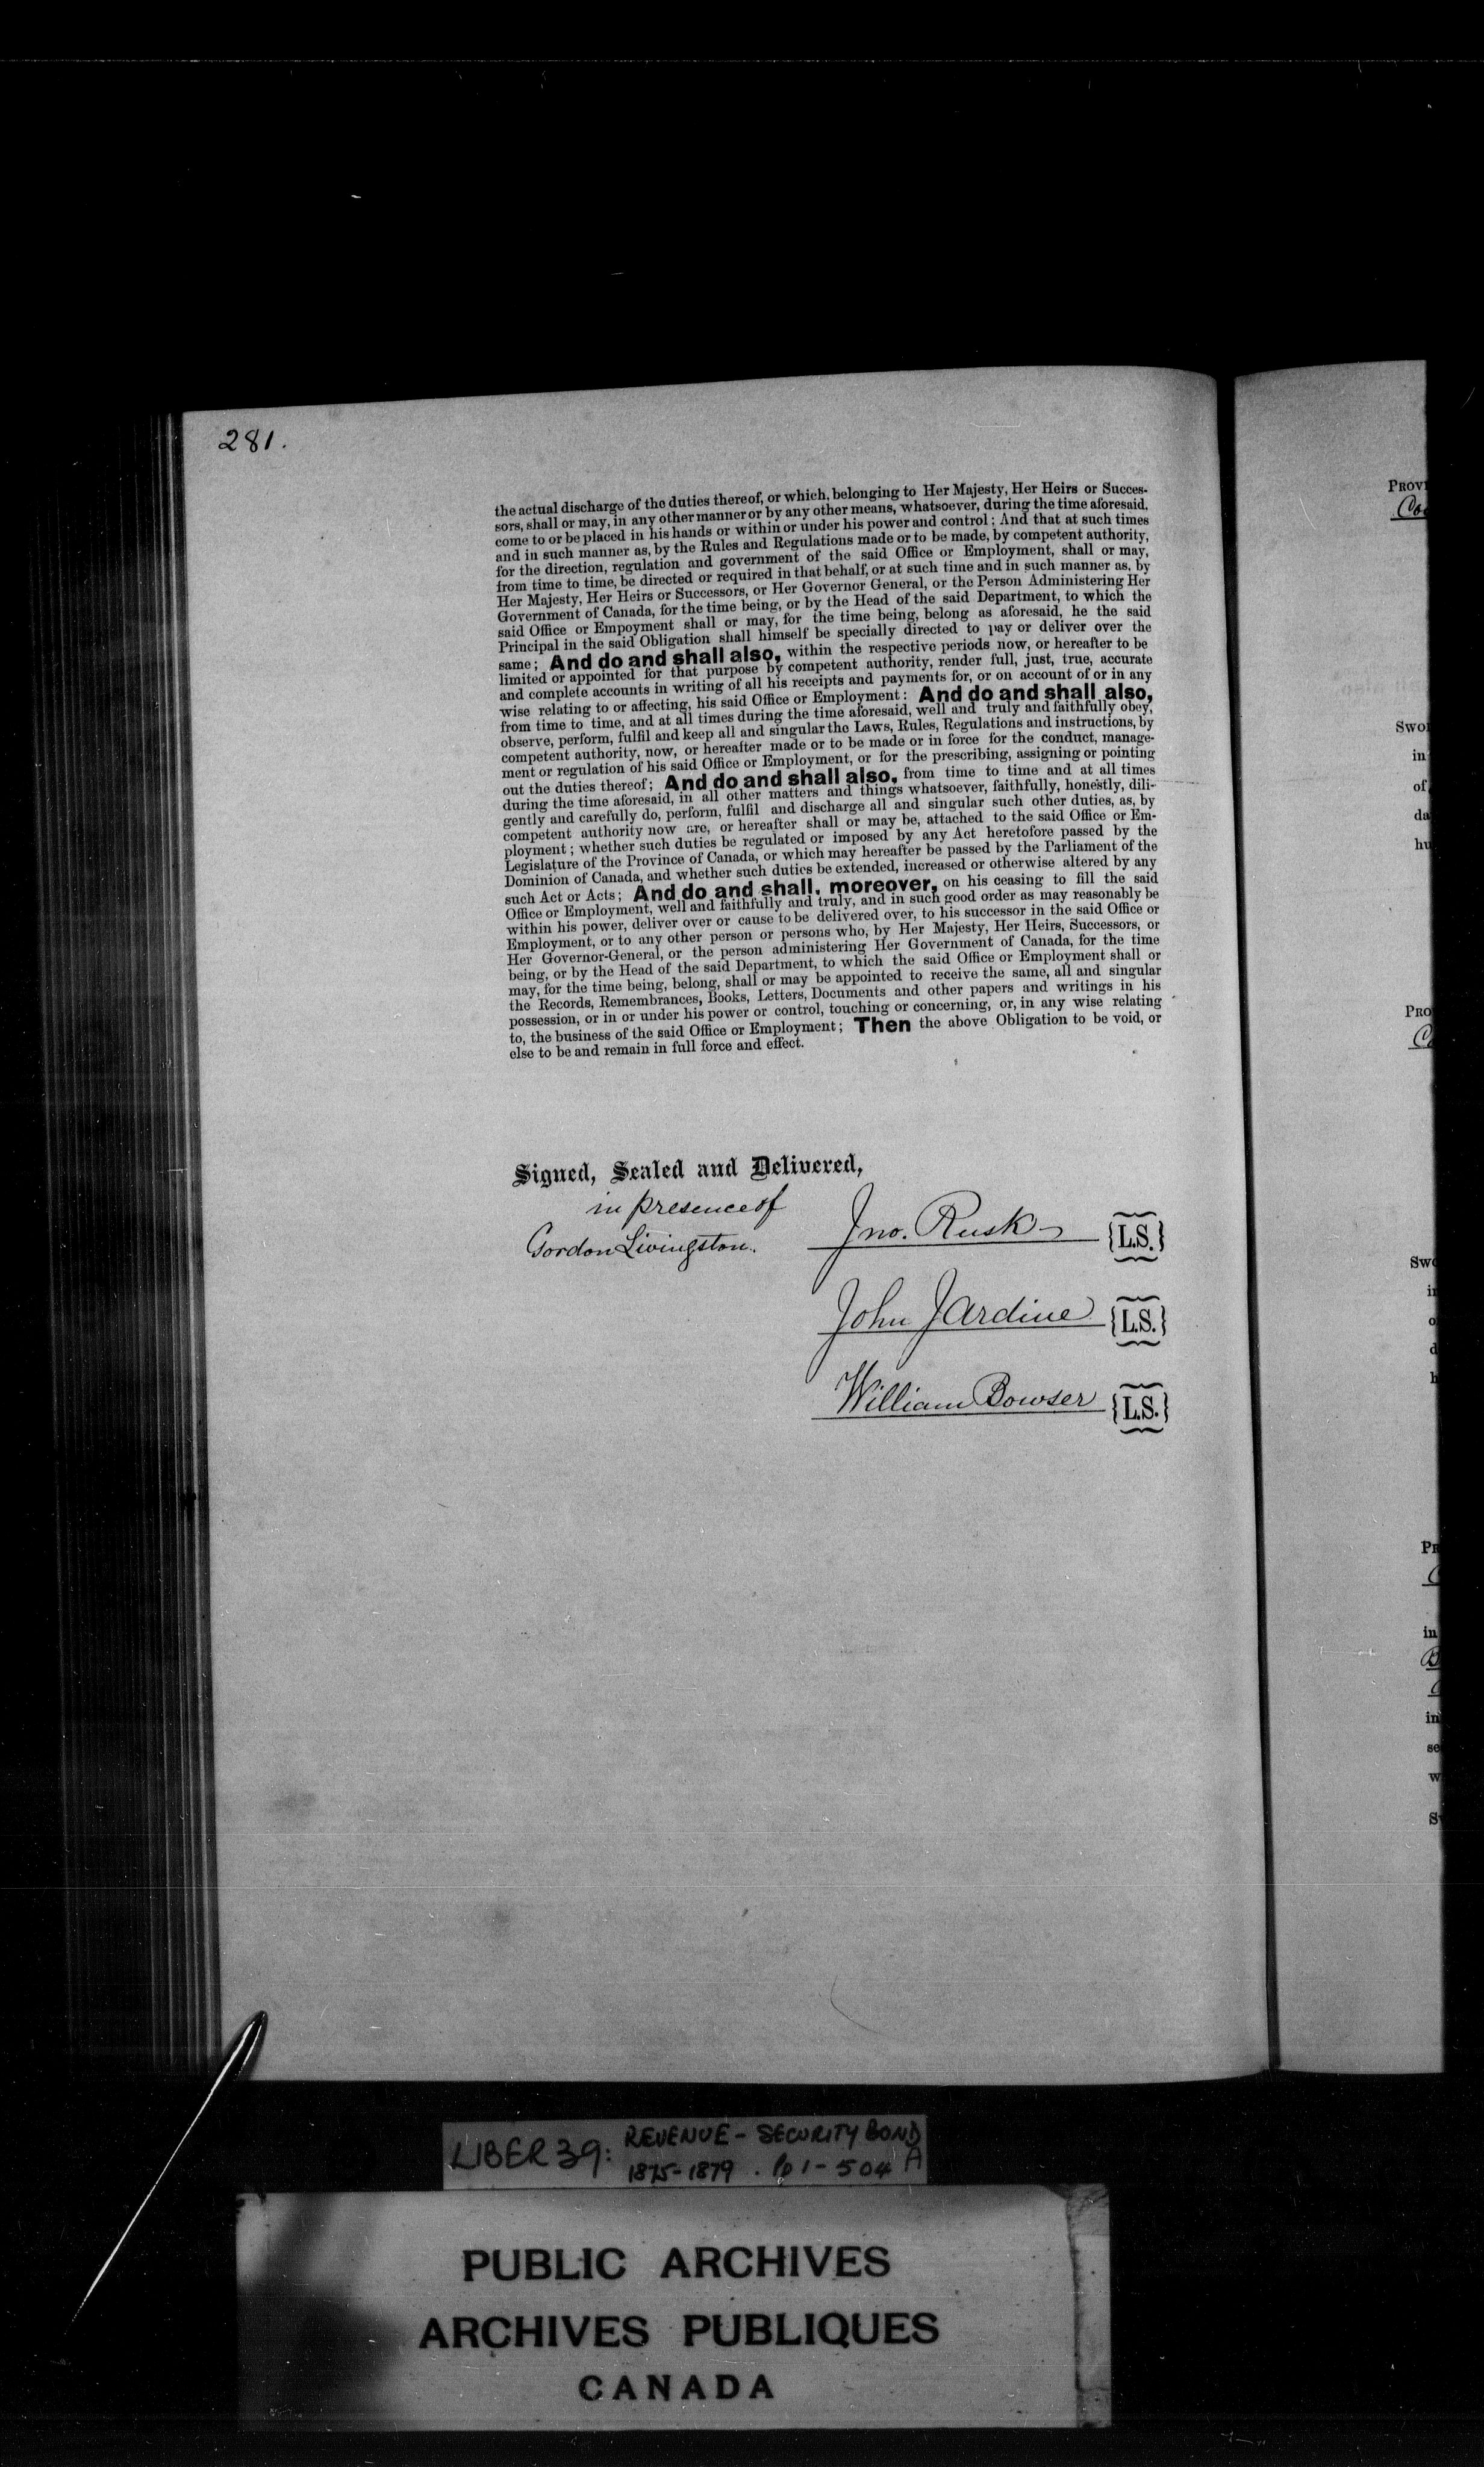 281.
the actual discharge of the duties thereof, or which, belonging to Her Majesty, Her Heirs or Succes-
sors, shall or may, in any other manner or by any other means, whatsoever, during the time aforesaid,
come to or be placed in his hands or within or under his power and control; And that at such times
and in such manner as, by the Rules and Regulations made or to be made, by competent authority,
for the direction, regulation and government of the said Office or Employment, shall or may,
from time to time, be directed or required in that behalf, or at such time and in such manner as, by
Her Majesty, Her Heirs or Successors, or Her Governor General, or the Person Administering Her
Government of Canada, for the time being, or by the Head of the said Department, to which the
said Office or Empoyment shall or may, for the time being, belong as aforesaid, he the said
Principal in the said Obligation shall himself be specially directed to pay or deliver over the
same; And do and shall also, within the respective periods now, or hereafter to be
limited or appointed for that purpose by competent authority, render full, just, true, accurate
and complete accounts in writing of all his receipts and payments for, or on account of or in any
wise relating to or affecting, his said Office or Employment: And do and shall also,
from time to time, and at all times during the time aforesaid, well and truly and faithfully obey,
observe, perform, fulfil and keep all and singular the Laws, Rules, Regulations and instructions, by
competent authority, now, or hereafter made or to be made or in force for the conduct, manage-
ment or regulation of his said Office or Employment, or for the prescribing, assigning or pointing
out the duties thereof; And do and shall also, from time to time and at all times
during the time aforesaid, in all other matters and things whatsoever, faithfully, honestly, dili-
gently and carefully do, perform, fulfil and discharge all and singular such other duties, as, by
competent authority now are, or hereafter shall or may be, attached to the said Office or Em-
ployment; whether such duties be regulated or imposed by any Act heretofore passed by the
Legislature of the Province of Canada, or which may hereafter be passed by the Parliament of the
Dominion of Canada, and whether such duties be extended, increased or otherwise altered by any
such Act or Acts; And do and shall, moreover, on his ceasing to fill the said
Office or Employment, well and faithfully and truly, and in such good order as may reasonably be
within his power, deliver over or cause to be delivered over, to his successor in the said Office or
Employment, or to any other person or persons who, by Her Majesty, Her Heirs, Successors, or
Her Governor-General, or the person administering Her Government of Canada, for the time
being, or by the Head of the said Department, to which the said Office or Employment shall or
may, for the time being, belong, shall or may be appointed to receive the same, all and singular
the Records, Remembrances, Books, Letters, Documents and other papers and writings in his
possession, or in or under his power or control, touching or concerning, or, in any wise relating
to, the business of the said Office or Employment; Then the above Obligation to be void, or
else to be and remain in full force and effect.
Signed, Sealed and Delivered,
in presence of
Gordon Livingston.
Jno. Rusk {L.S.}
John Jardine {L.S.}
William Bowser {L.S.}
LIBER 39: REVENUE - SECURITY BOND A
1875-1879 . Pp 1 - 504
PUBLIC ARCHIVES
ARCHIVES PUBLIQUES
CANADA